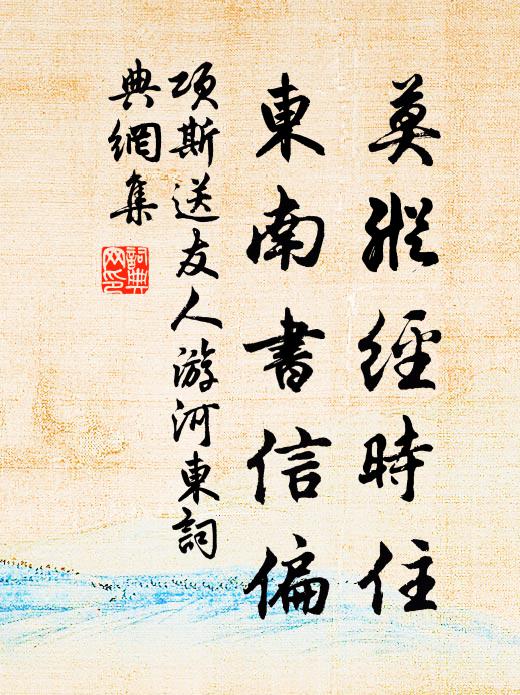 莫縱經時住
東南書信偏
項斯送友人游河東詞
典網集
詞典
网印